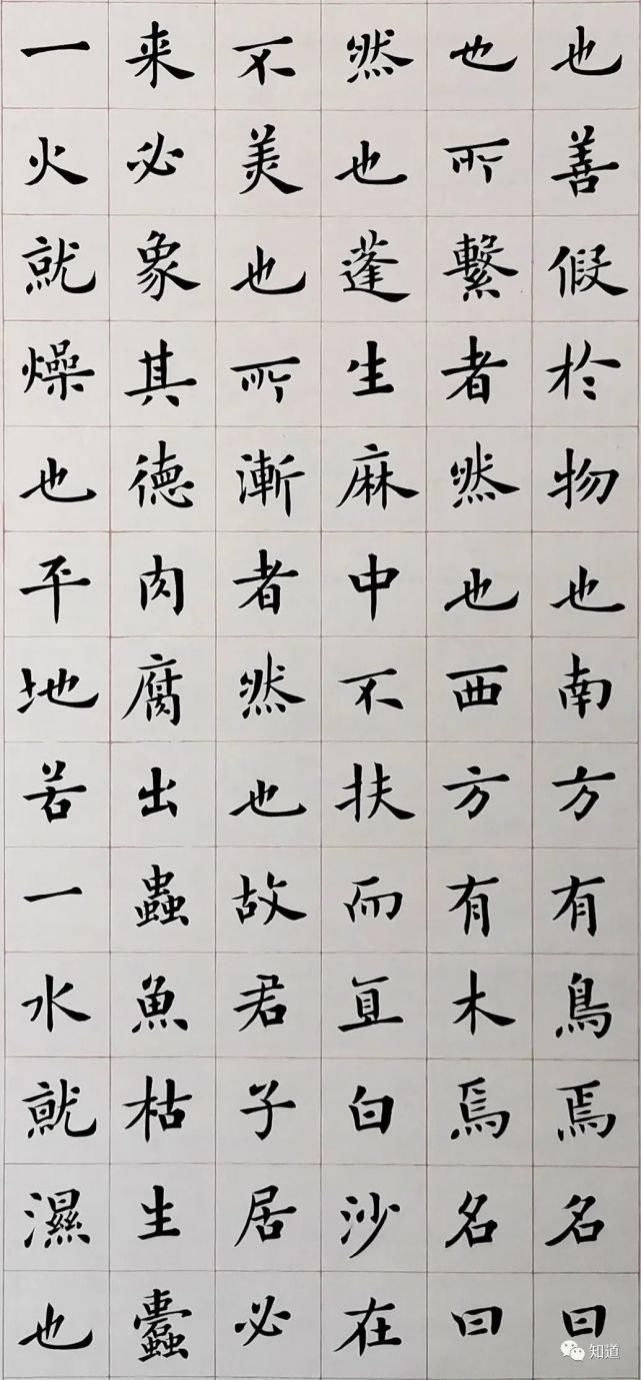 也善假於物也南方有鳥焉名曰
也所繫者然也西方有木焉名曰
然也蓬生麻中不扶而直白沙在
不美也所漸者然也故君子居必
来必象其德肉腐出蟲魚枯生蠹
一火就燥也平地若一水就濕也
知道